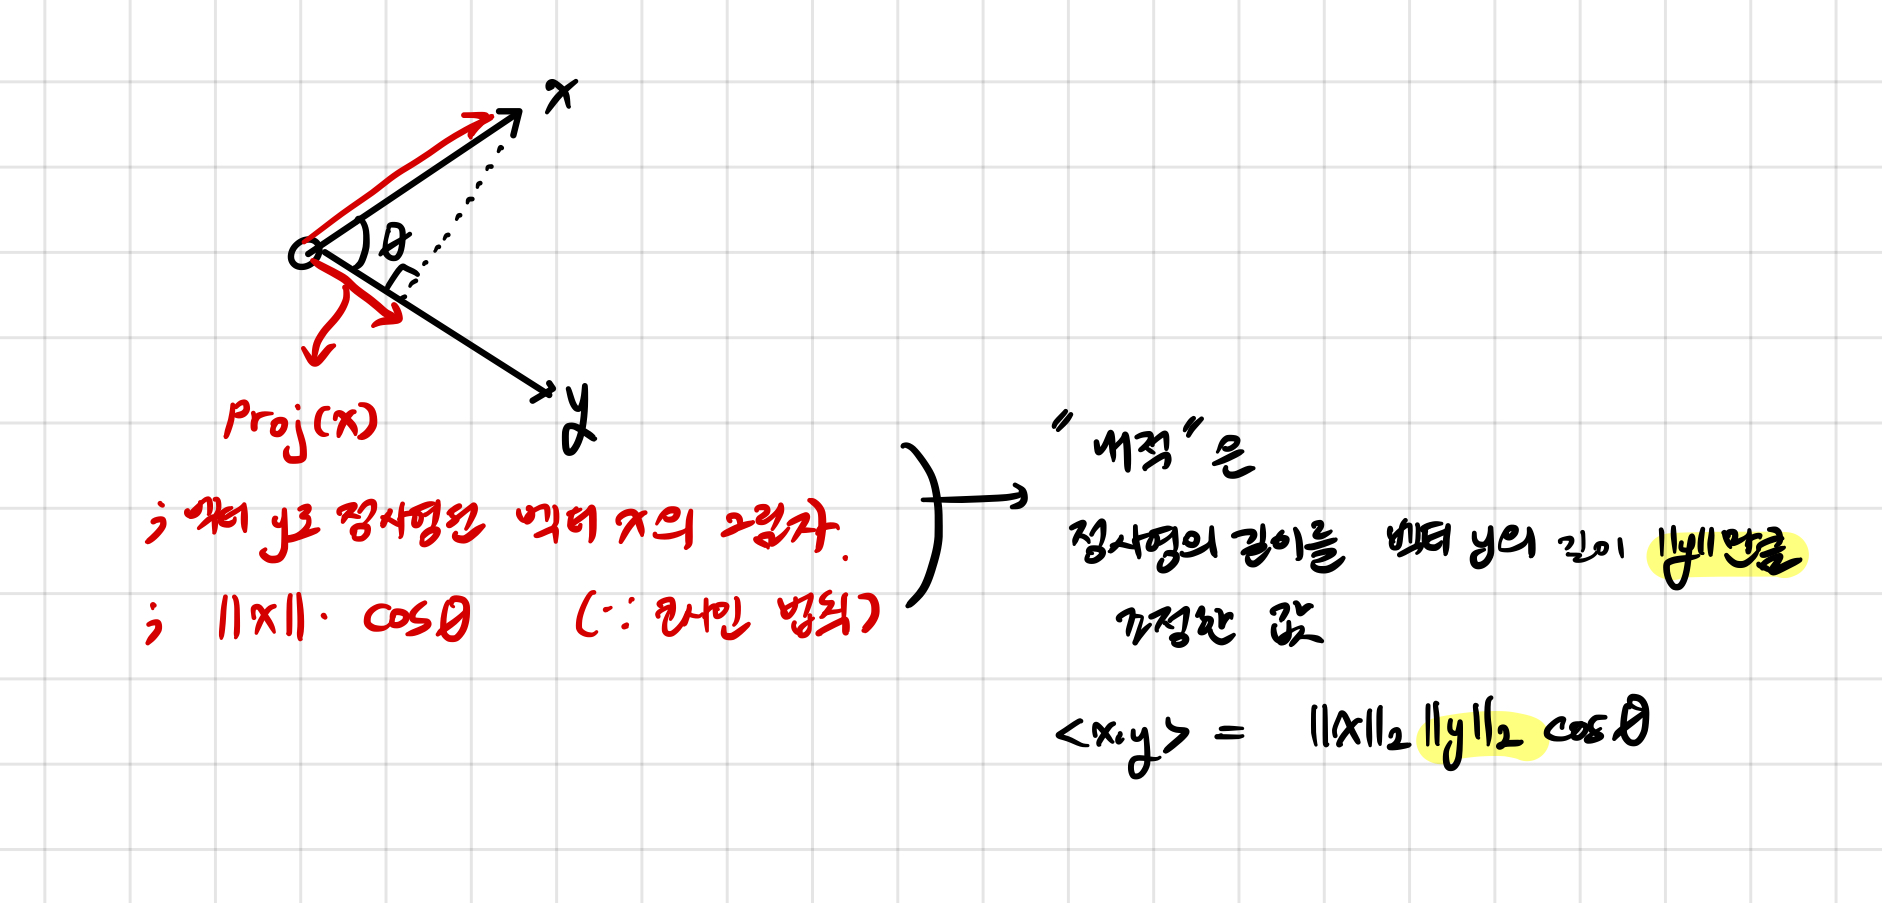 x
θ
y
Proj(x)
; 벡터 y로 정사영된 벡터 x의 그림자.
; ||x|| · cosθ (∵ 코사인 법칙)
"내적"은
정사영의 길이를 벡터 y의 길이 ||y||만큼
조정한 값
<x,y> = ||x||₂ ||y||₂ cosθ